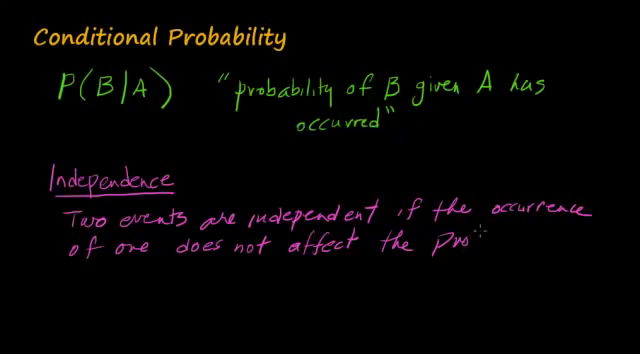 Conditional Probability
P(B/A) "probability of B given A has
occurred"
Independence
Two events are independent if the occurrence
of one does not affect the pro